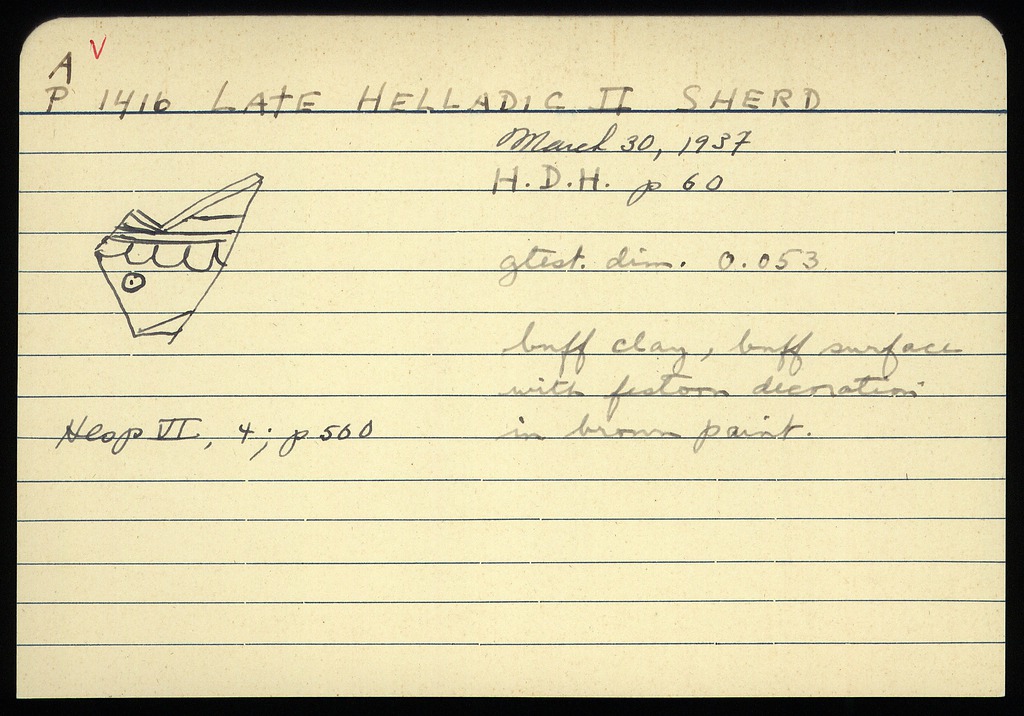 A V
P 1416 LATE HELLADIC II SHERD
March 30, 1937
H.D.H. p 60
gtest. dim. 0.053
buff clay, buff surface
with festoon decoration
in brown paint.
Hesp VI, 4; p 560